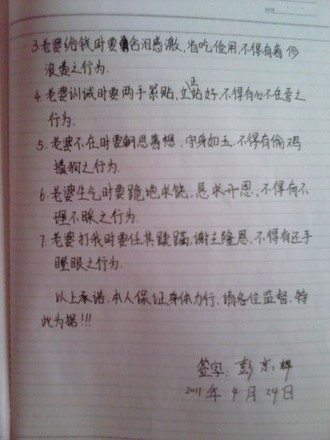 3.老婆给钱时要含泪感激,省吃俭用,不得有奢侈
浪费之行为.
4.老婆训诫时要两手紧贴,立正站好,不得有心不在焉之
行为.
5.老婆不在时要朝思暮想、守身如玉,不得有偷鸡
摸狗之行为.
6.老婆生气时要跪地求饶,恳求开恩,不得有不
理不睬之行为.
7.老婆打我时要任其蹂躏,谢主隆恩,不得有还手
瞪眼之行为.
以上承诺,本人保证身体力行,请各位监督,特
此为据!!!
签字:彭京辉
2011年4月24日